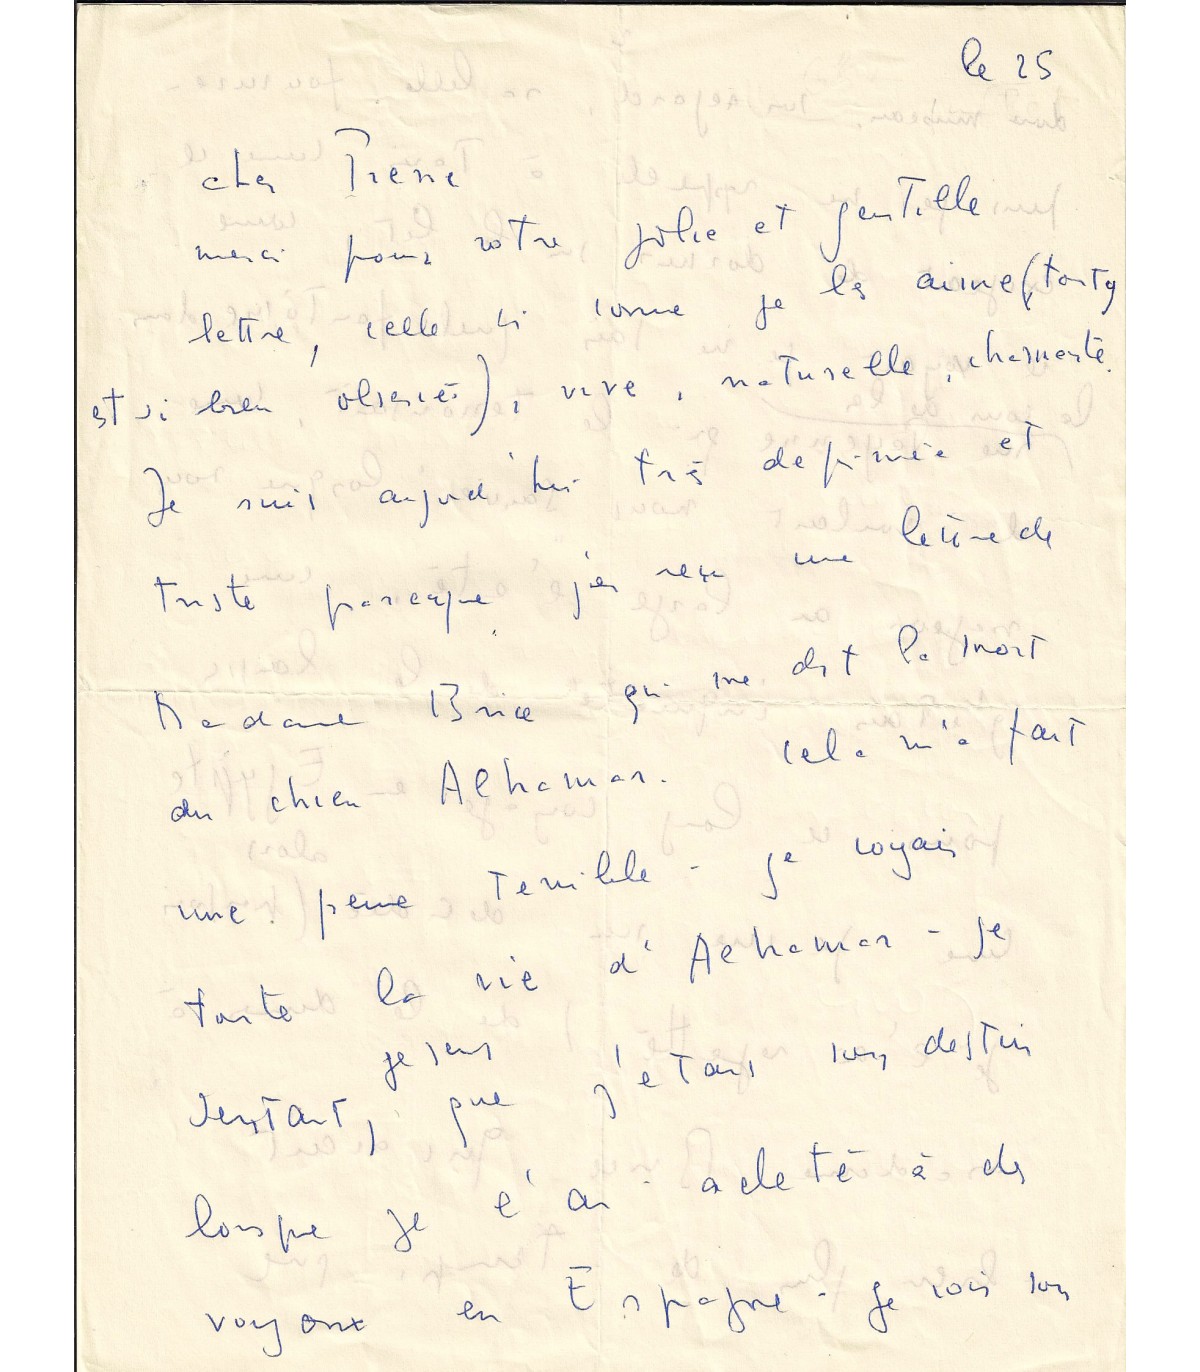 le 25
cher Irène
merci pour votre jolie et gentille
lettre, celle ci comme je les aime (tout y
est si bien observé), vive, naturelle, charmante.
Je suis aujourd'hui très déprimée et
triste parceque j'ai reçu une lettre de
Madame Brice qui me dit la mort
du chien Alhamar. cela m'a fait
une peine terrible - je voyais
toute la vie d'Alhamar - je
je sens
sentait, que j'étais son destin
lorsque je l'ai acheté à des
voyoux en Espagne - je vois son